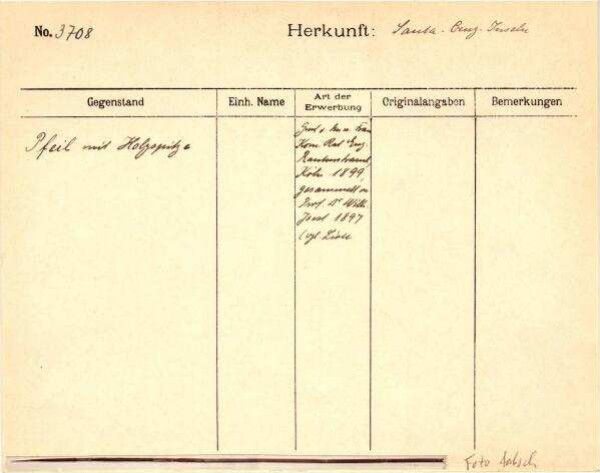 No. 3708
Herkunft: Santa-Cruz-Inseln
Gegenstand
Einh. Name
Art der
Erwerbung
Originalangaben
Bemerkungen
Pfeil mit Holzspitze
Kom. Rat Eug.
Rautenstrauch,
Köln 1899,
gesammelt v.
Prof. Dr Wilh.
Joest 1897
Foto